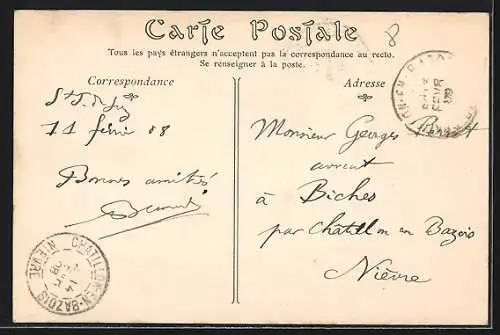 Carte Postale
8
Tous les pays étrangers n'acceptent pas la correspondance au recto.
Se renseigner à la poste.
Correspondance
Adresse
11 février 08
Bonnes amitiés
Monsieur Georges
à Biches
par Chatillon en Bazois
Nièvre
CHATILLON-EN-BAZOIS
NIÈVRE